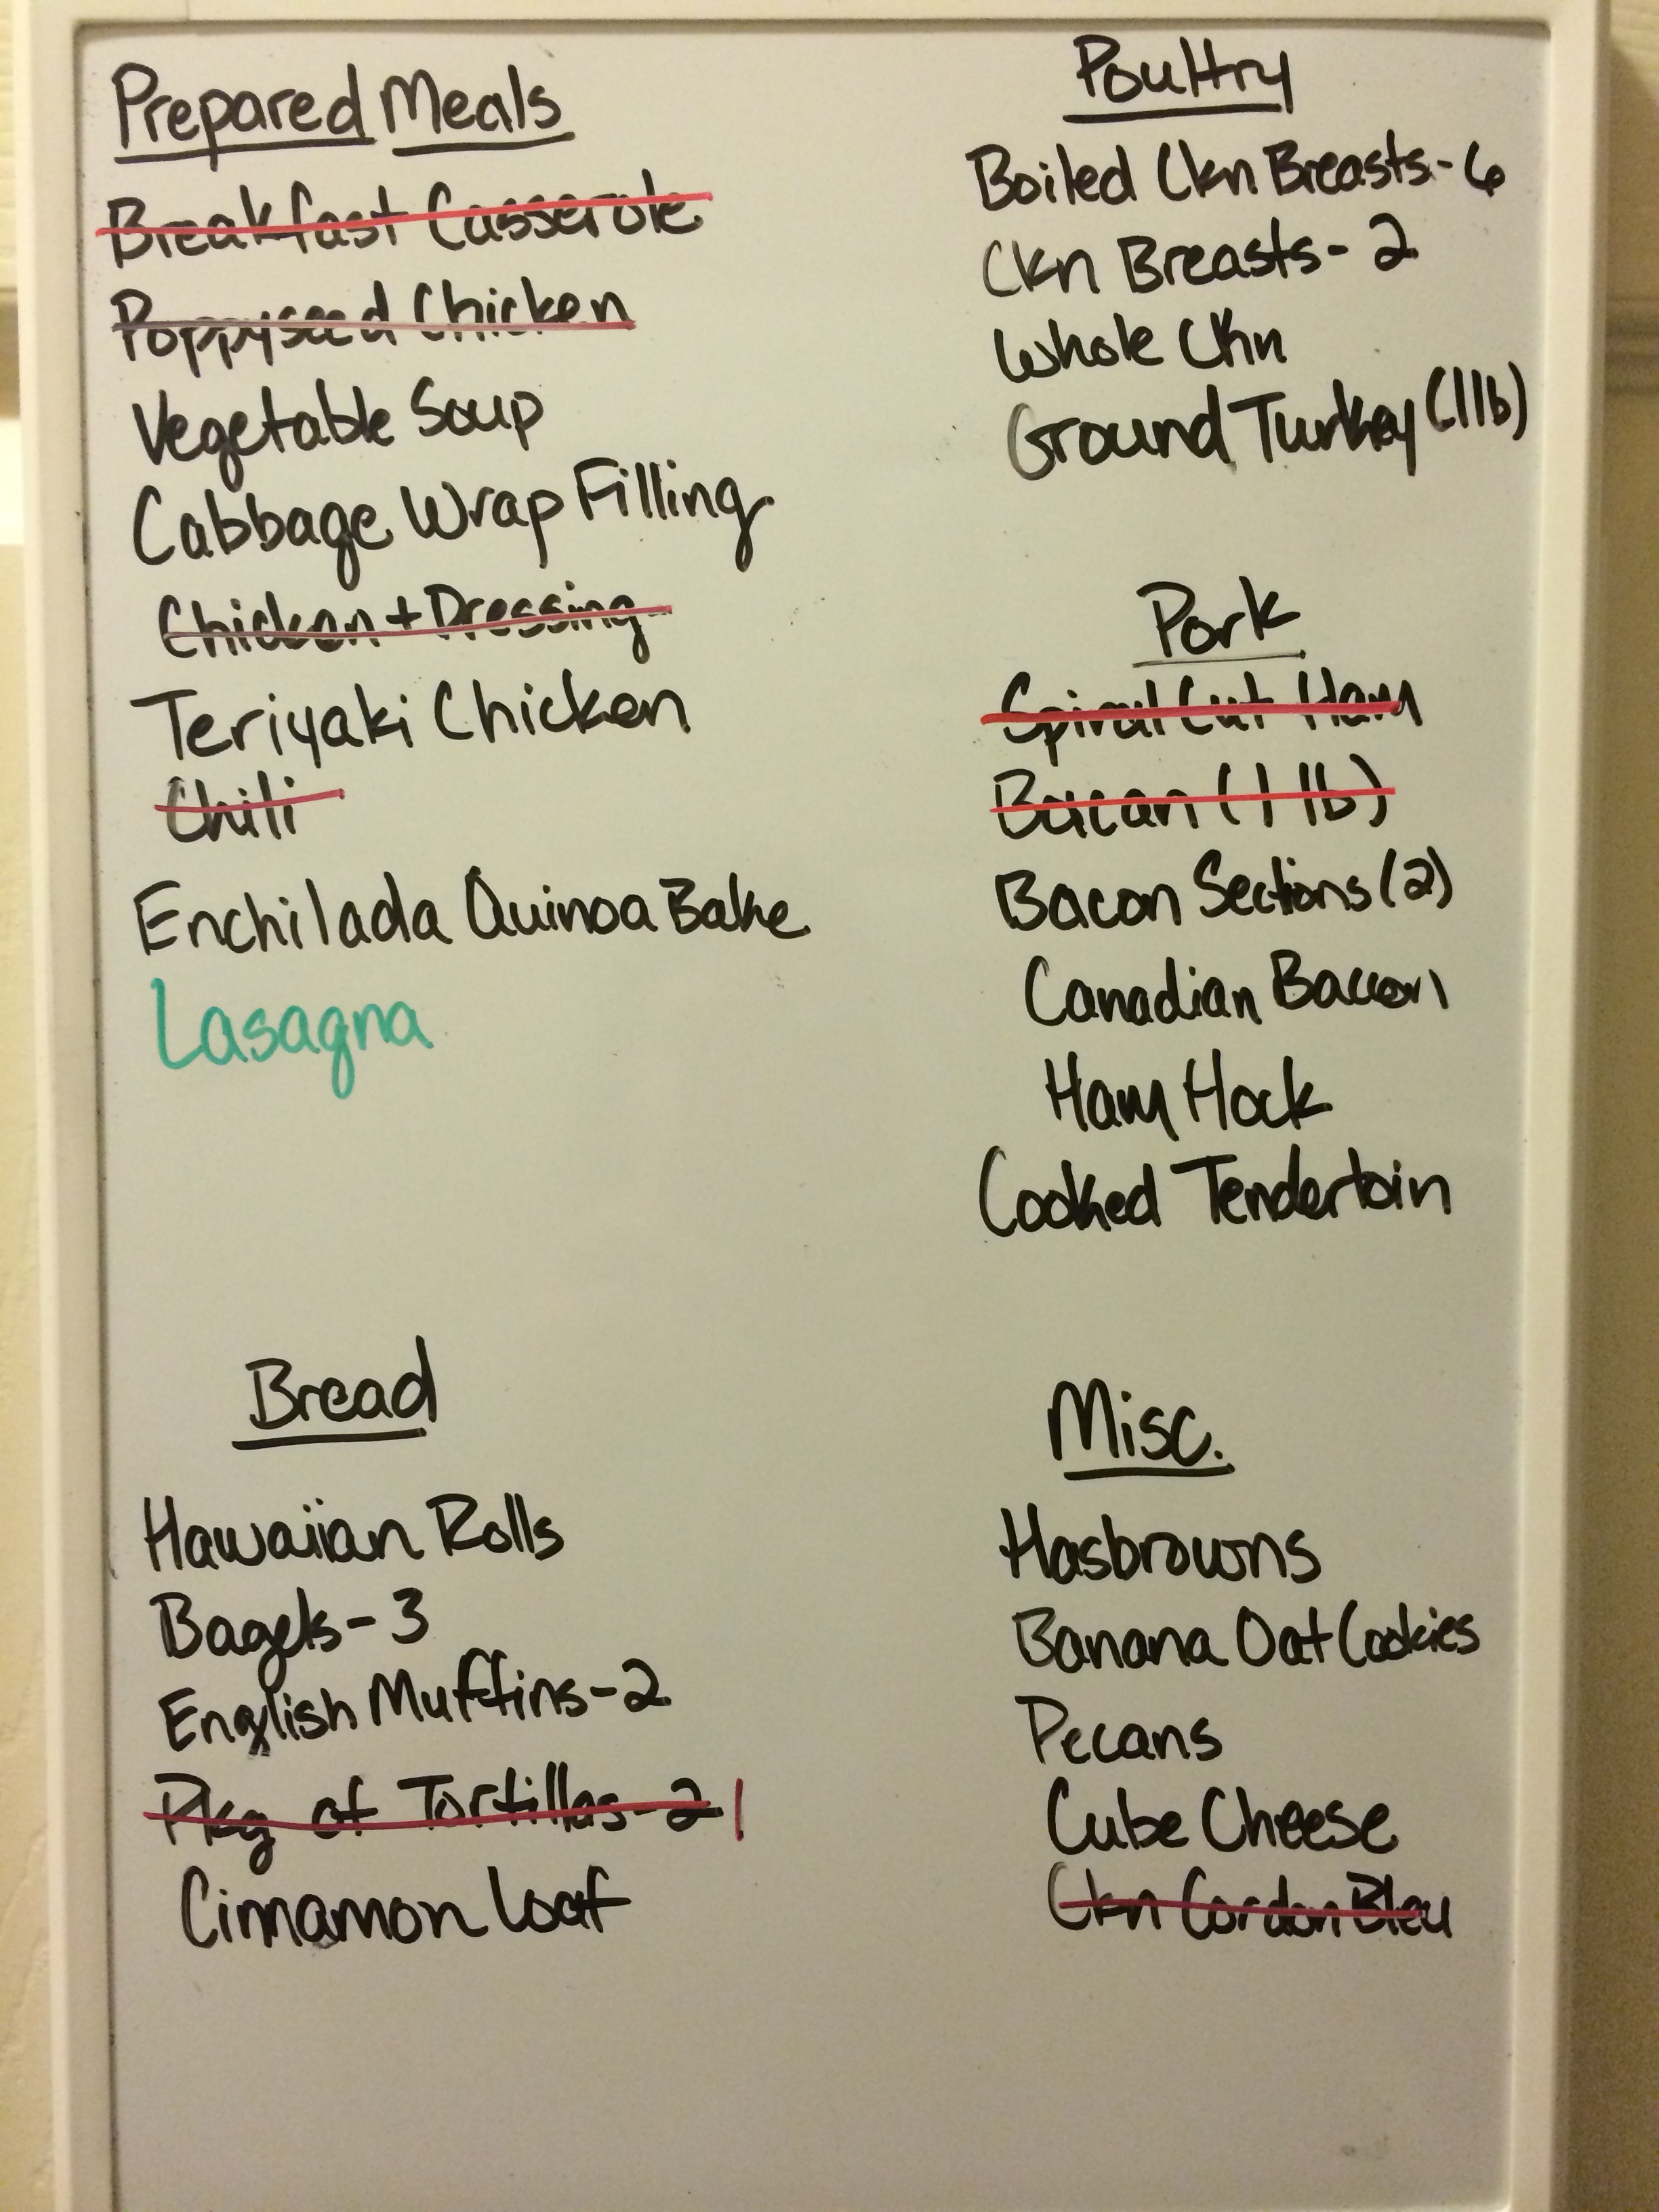 Prepared Meals
Breakfast Casserole
Poppyseed Chicken
Vegetable Soup
Cabbage Wrap Filling
Chicken + Dressing
Teriyaki Chicken
Chili
Enchilada Quinoa Bake
Lasagna
Bread
Hawaiian Rolls
Bagels - 3
English Muffins - 2
Pkg of Tortillas - 2 1
Cinnamon Loaf
Poultry
Boiled Ckn Breasts - 6
Ckn Breasts - 2
Whole Ckn
Ground Turkey (1lb)
Pork
Spiral Cut Ham
Bacon (1 lb)
Bacon Sections (2)
Canadian Bacon
Ham Hock
Cooked Tenderloin
Misc.
Hasbrowns
Banana Oat Cookies
Pecans
Cube Cheese
Ckn Cordon Bleu